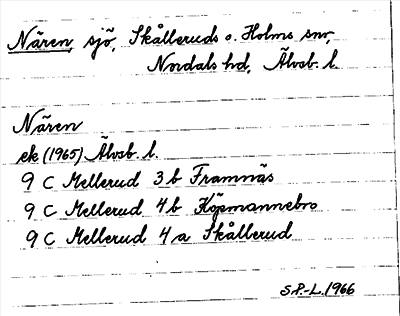 Nären, sjö, Skålleruds o. Holms snr,
Nordals hd, Älvsb. l.
Nären
ek (1965) Älvsb. l.
9 C Mellerud 3 b Framnäs
9 C Mellerud 4 b Köpmannebro
9 C Mellerud 4 a Skållerud
S.P.-L. 1966